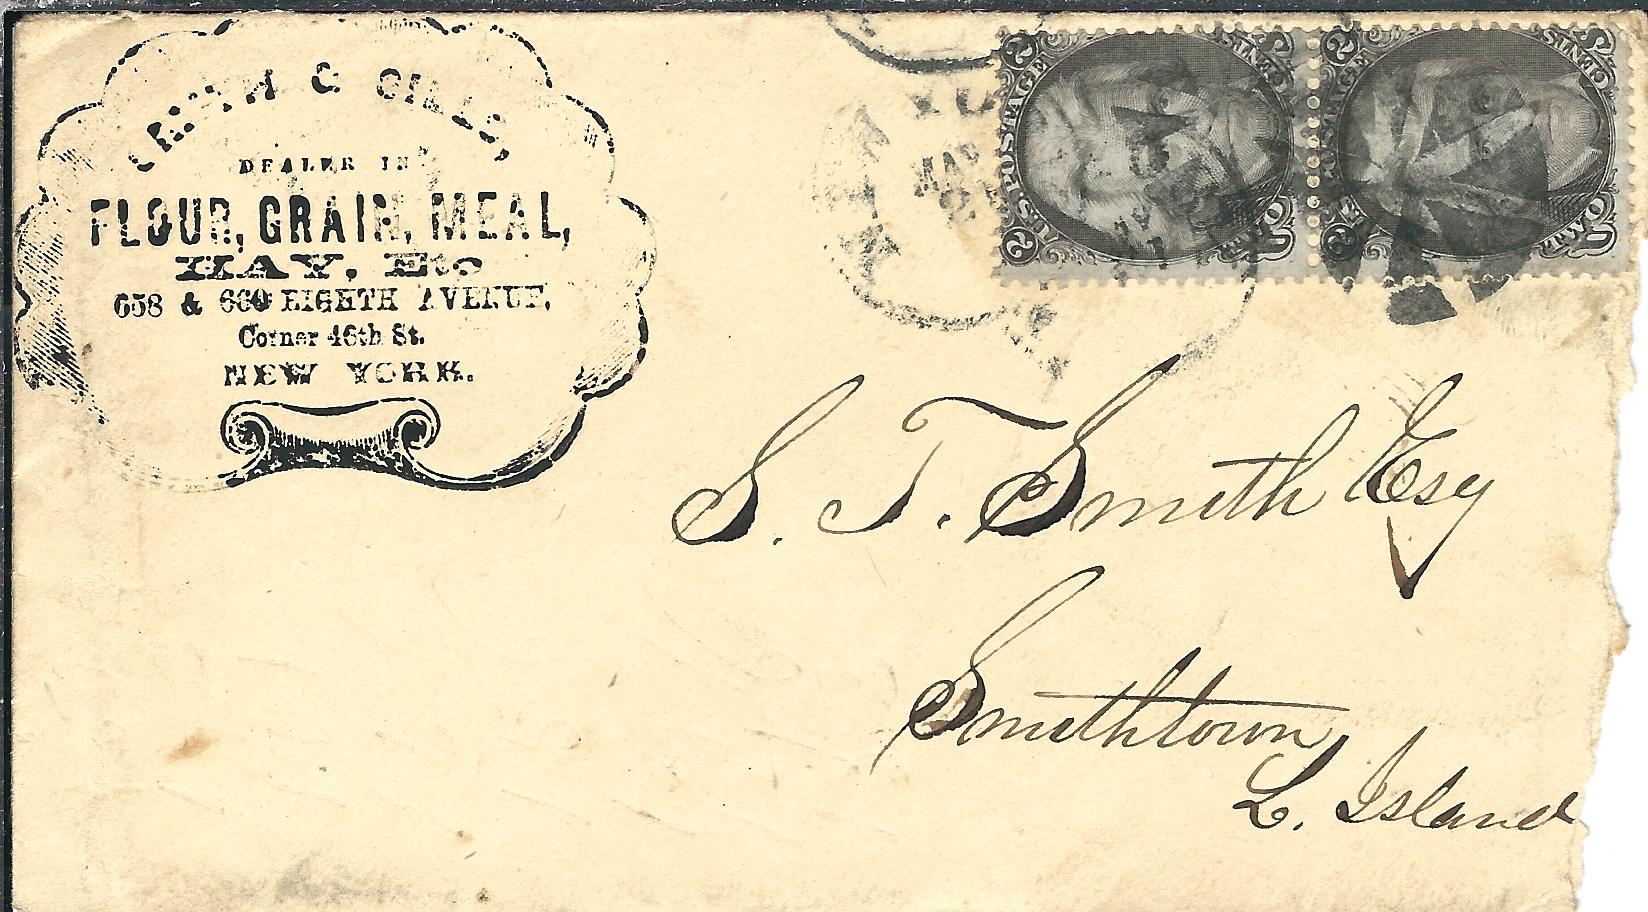 & GILLS,
DEALER IN
FLOUR, GRAIN, MEAL,
HAY, Etc
658 & 660 EIGHTH AVENUE,
Corner 46th St.
NEW YORK.
NEW YO
MAR
U.S. POSTAGE
TWO CENTS
2 2
U.S. POSTAGE
TWO CENTS
2 2
S. T. Smith Esq
Smithtown,
L. Island